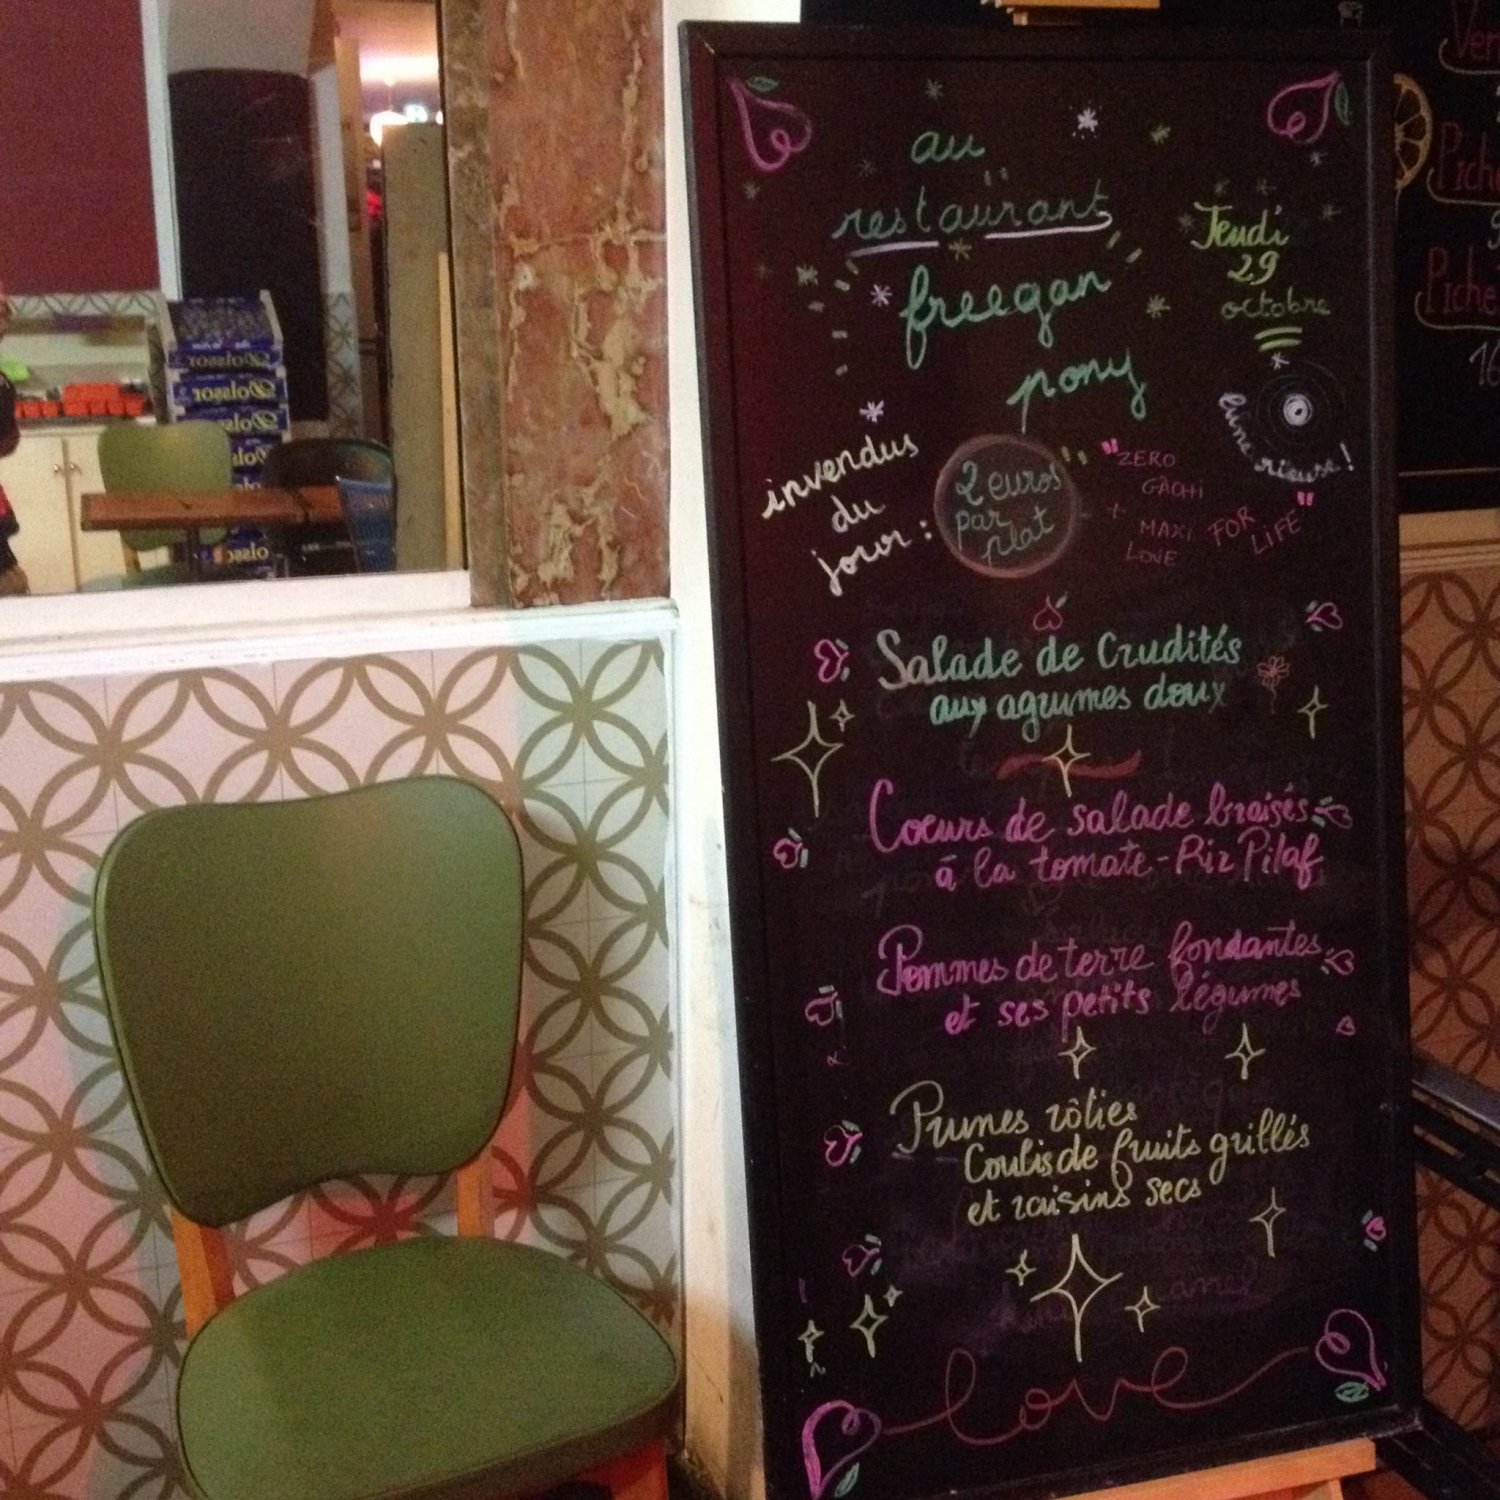 au
restaurant
freegan
pony
Jeudi
29
octobre
lune rieuse!
invendus
du
jour:
2 euros
par
plat
"ZERO
GÂCHI
+ MAXI
LOVE
FOR
LIFE"
Salade de Crudités
aux agrumes doux
Coeurs de salade braisés
à la tomate - Riz Pilaf
Pommes de terre fondantes
et ses petits légumes
Prunes rôties
Coulis de fruits grillés
et raisins secs
love